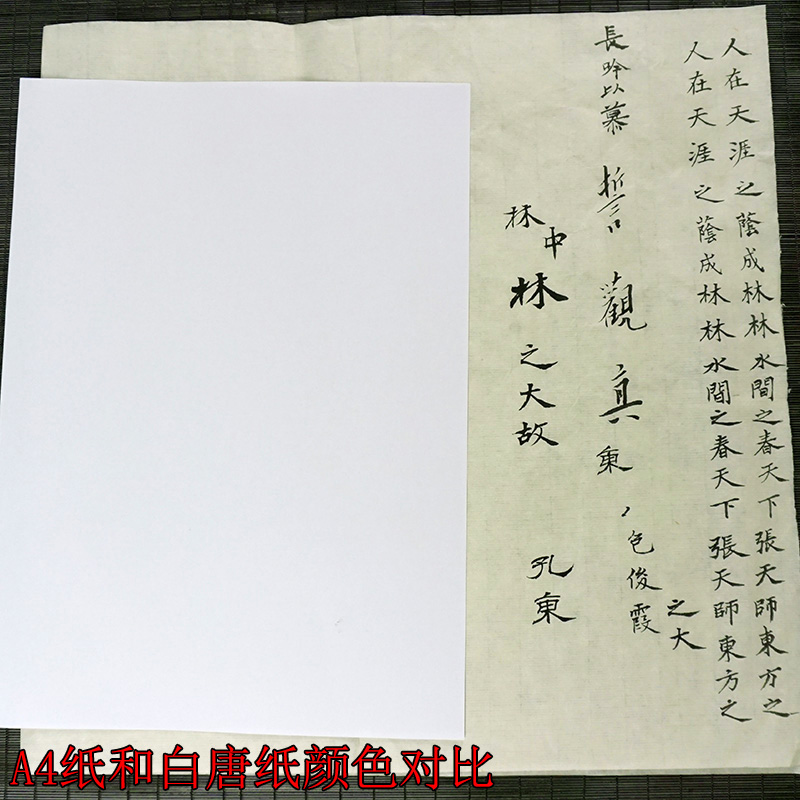 人在天涯之蔭成林林水間之春天下張天師東方之
人在天涯之蔭成林林水間之春天下張天師東方之
之大
長吟以慕誓觀真東丶包俊霞
林中林之大故
孔東
A4纸和白唐纸颜色对比